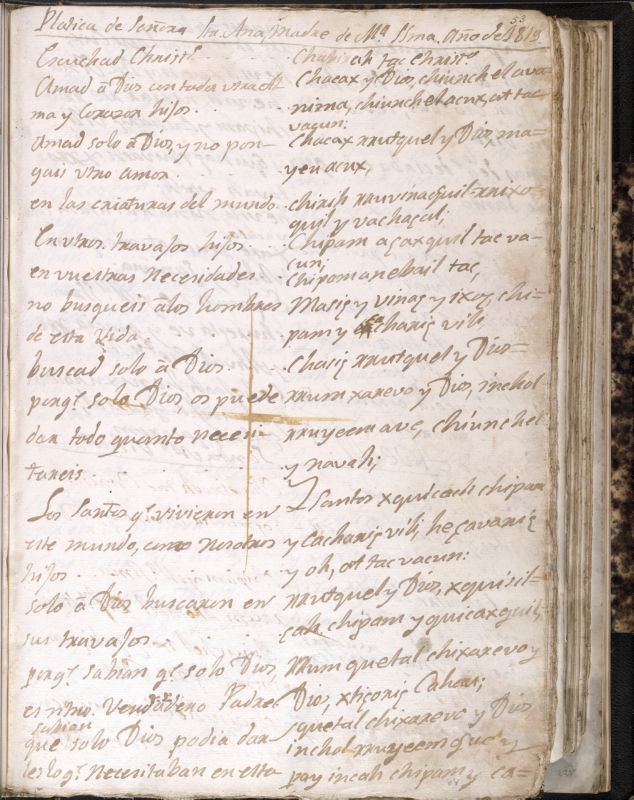 53
Platica de Señora Sta. Ana, Madre de Ma. SSma. Año de 1819
Escuchad Christs.
Amad â Dios con toda vtra al
ma y Corazon hijos.
Amad solo â Dios, y no pon-
gais vtro amor.
en las criaturas del mundo.
En vtros. travajos hijos.
en vuestras necesidades.
no busqueis â los hombres
de esta Vida.
buscad solo â Dios
porqe. solo Dios, os puede
dar todo quanto necesi-
tareis.
Los Santos qe. vivieron en
este mundo, como nosotros
hijos.
solo â Dios buscaron en
sus travajos.
porqe. sabian qe. solo Dios,
es ntro. Verdadero Padre
sabian
que solo Dios podia dar
les lo qe. necesitaban en esta
tac Christs.
Chacax y Dios, chiunchel ava-
nima, chiunchel acux, at tac
vacun:
Chacax rrutquel y Dios ma-
yen acux,
chirih rruvinaquil rrixo-
quil y vachaçal;
Chipam açaxquil tac va-
cun;
chipam anebail tac,
y vinaq y ixoq, chi-
pam y chanig vili,
rrutquel y Dios-
rrumxarevo y Dios, inchol
rruyeem ave, chiunchel
y navah;
Santos xquicach chipam
y Cachanig vili, heçavanig
y oh, at tac vacun:
rrutquel y Dios, xquisil-
cah chipam y quicaxquil,
rrumquetal chixarevo y
Dios, Cahau;
squetal chixarevo y Dios
inchol rruyeem que y
pay incah chipam y ca=